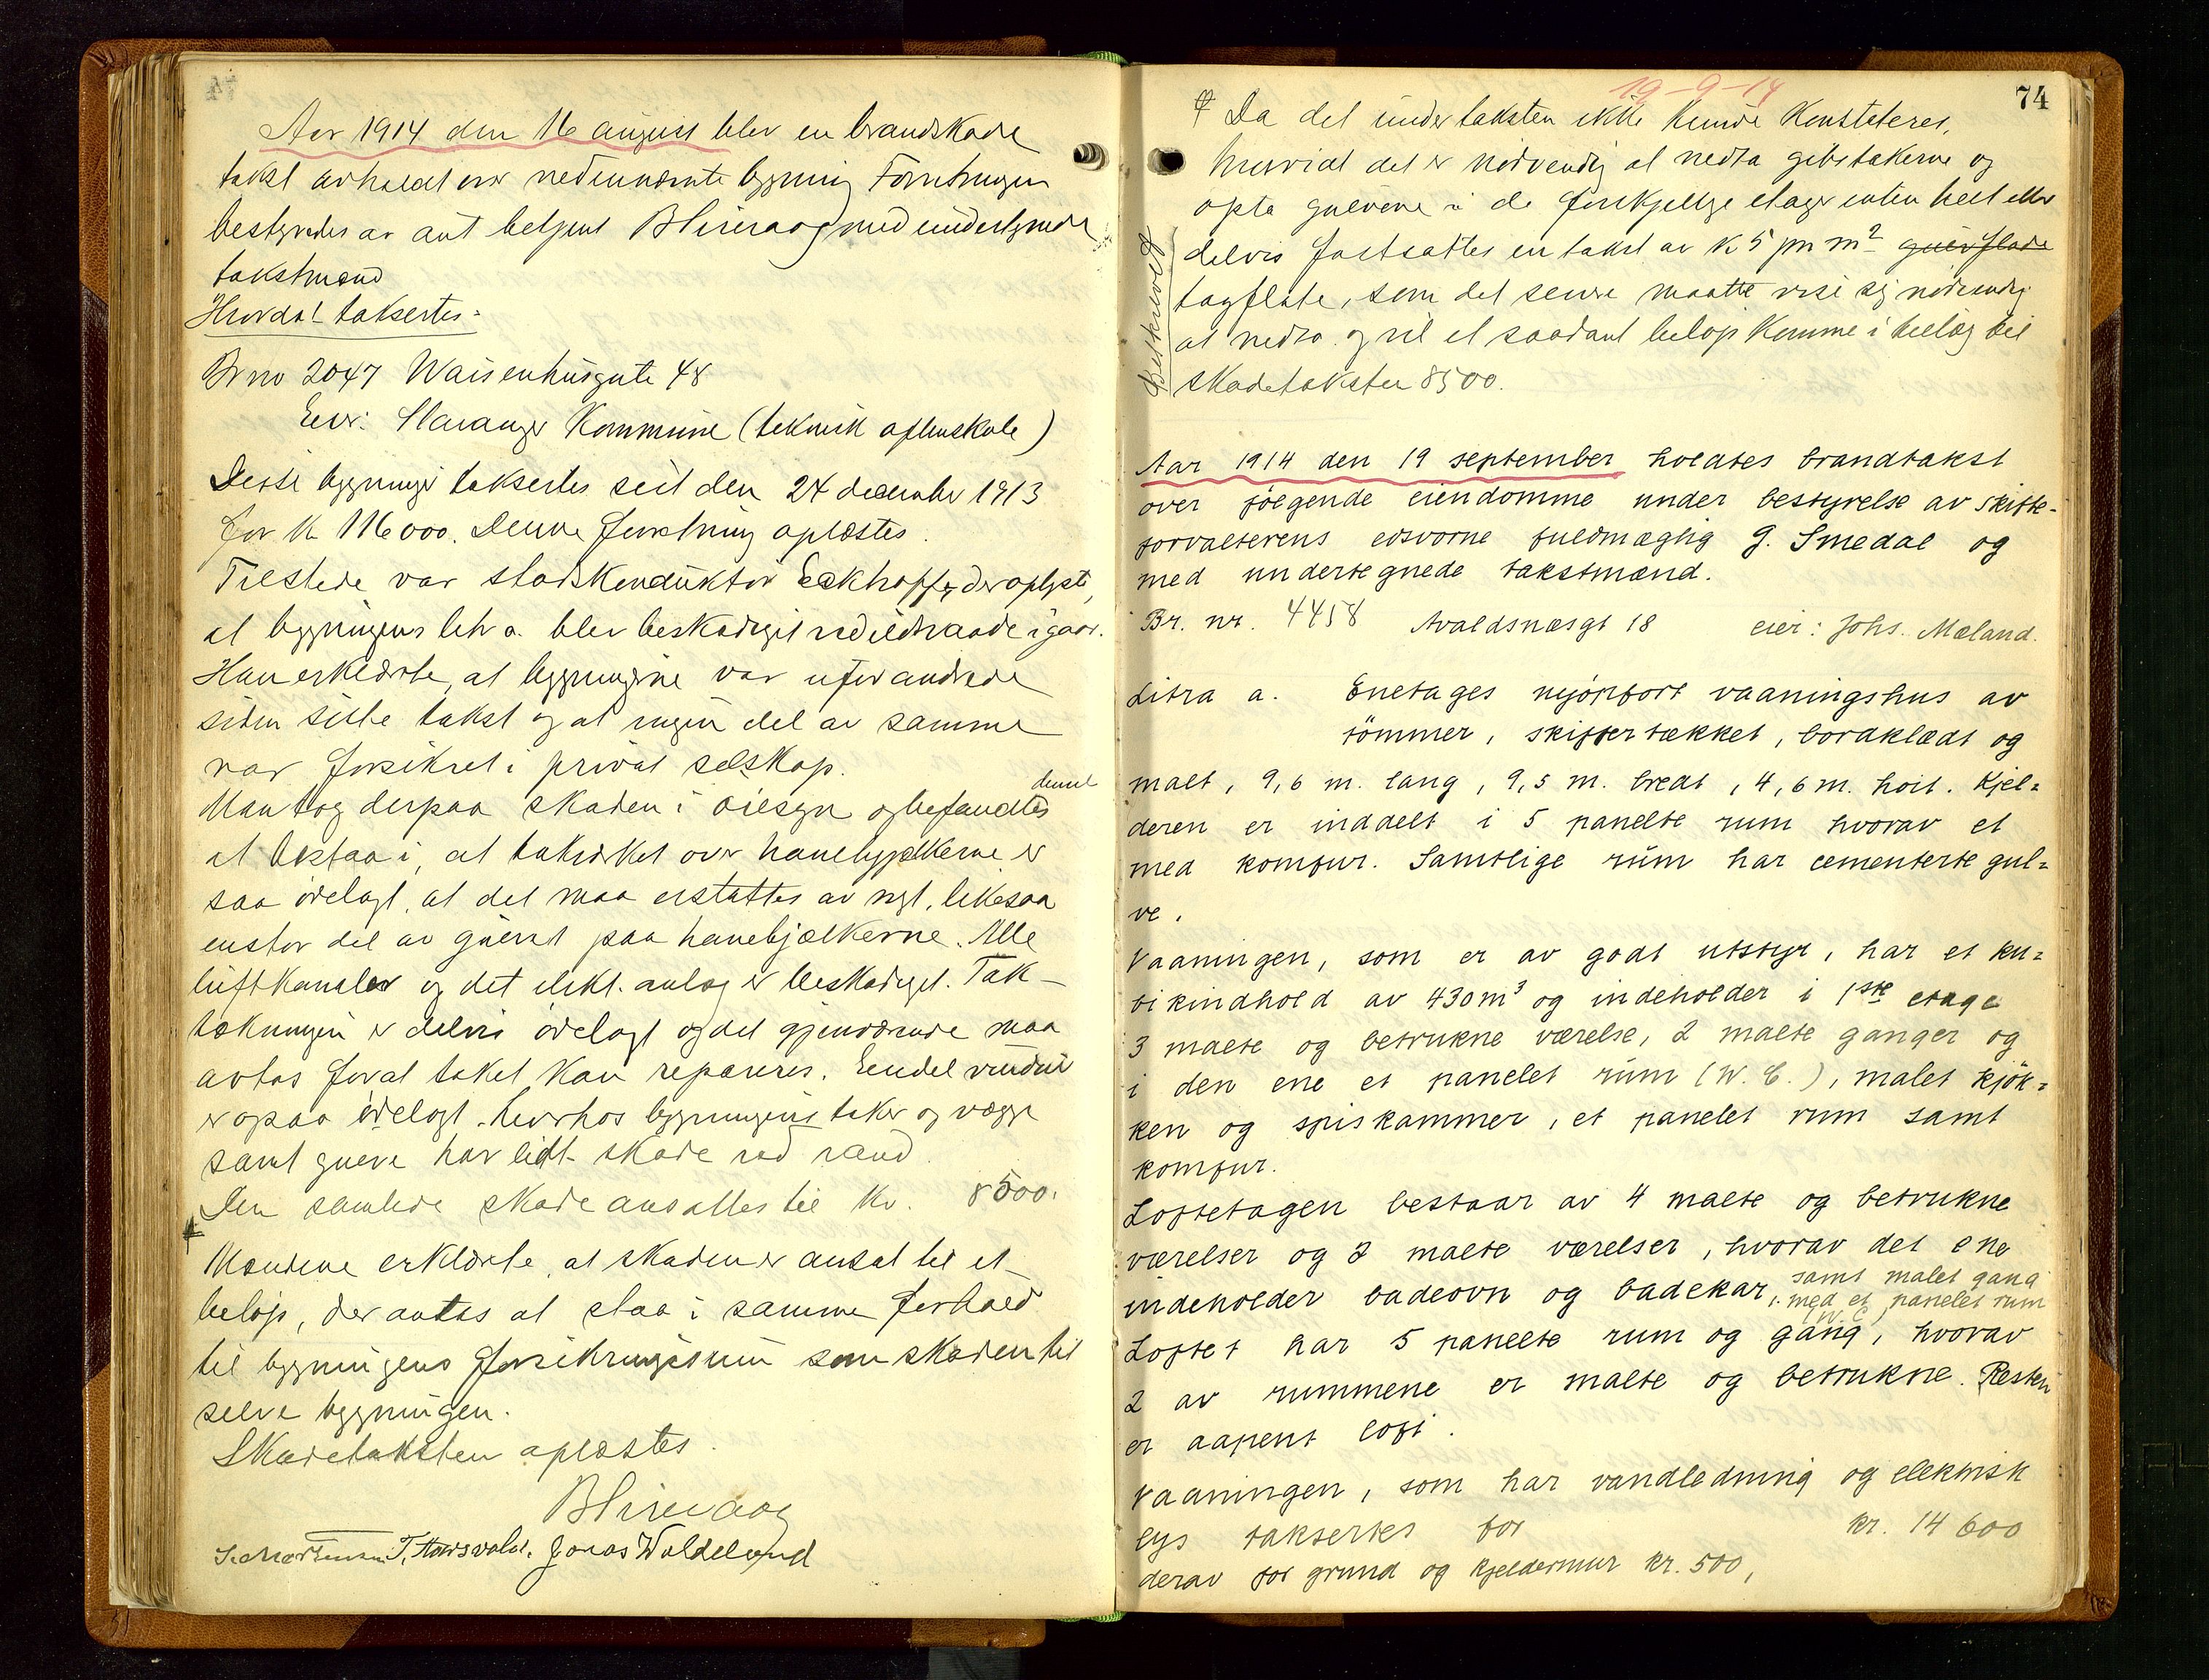 Aar 1914 den 16 august blev en brandskade
takst avholdt over nedennævnte bygning Forretningen
bestyredes av amt betjent med undertegnede
takstmænd
Hvorda! taksertes:
Br no 2047 Waisenhusgate 48
Eier: Stavanger Kommune (teknisk aftenskole)
Disse bygninger taksertes sist den 24 december 1913
for kr 116000. Denne forretning oplæstes.
Tilstede var stadskonduktør Eckhoff, der oplyste,
at bygningens litr a. blev beskadiget ved ildsvaade igaar.
Han erklærte, at bygningerne var uforandrede
siden siste takst og at ingen del av samme
var forsikret i privat selskap.
Man tog derpaa skaden i øiesyn og befandtes denne
at bestaa i, at takverket over hanebjælkerne er
saa ødelagt, at det maa erstattes av nyt, likesaa
en stor del av gulvet paa hanebjælkerne. Alle
luftkanaler og det elekt. anlæg er beskadiget. Tak-
tækningen er delvis ødelagt og det gjenværende maa
avtas forat taket kan repareres. Endel vinduer
er ogsaa ødelagt. hvorhos bygningens taker og vægge
samt gulve har lidt skade ved vand.
Den samlede skade ansattes til kr. 8500.
Mændene erklærte, at skaden er ansat til et
beløp, der antas at staa i samme forhold
til bygningens forsikringssum som skaden til
selve bygningen.
Skadetaksten oplæstes.
Jonas Waldeland
74
19-9-14
Da det under taksten ikke kunde konstateres,
hvorvidt det er nødvendig at nedta gibstakerne og
opta gulvene i de forskjellige etager enten helt eller
delvis fastsattes en takst av k 5 pr m² gulvflade
tagflate, som det senere maatte vise sig nødvendig
at nedta og vil et saadant beløp komme i tillæg til
skadetaksten 8500.
Aar 1914 den 19 september holdtes brandtakst
over følgende eiendomme under bestyrelse av skifte-
forvalterens edsvorne fuldmægtig G. Smedal og
med undertegnede takstmænd.
Br. nr. 4458 Avaldsnæsgt 18 eier: Johs. Mæland.
Litra a. Enetages nyopført vaaningshus av
tømmer, skifertækket, bordklædt og
malt, 9,6 m. lang, 9,5 m. bredt, 4,6 m. høit. Kjel=
deren er inddelt i 5 panelte rum hvorav et
med komfur. Samtlige rum har cementerte gul=
ve.
Vaaningen, som er av godt utstyr, har et ku=
bikindhold av 430 m³ og indeholder i 1ste etage
3 malte og betrukne værelse, 2 malte ganger og
i den ene et panelet rum (W. C.), malet kjøk=
ken og spiskammer, et panelet rum samt
komfur.
Loftetagen bestaar av 4 malte og betrukne
værelser og 2 malte værelser, hvorav det ene
indeholder badeovn og badekar, samt malet gang
med et panelet rum
(W. C)
Loftet har 5 panelte rum og gang, hvorav
2 av rummene er malte og betrukne. Resten
er aapent loft.
Vaaningen, som har vandledning og elektrisk
lys taksertes for kr. 14 600
derav for grund og kjeldermur kr. 500,